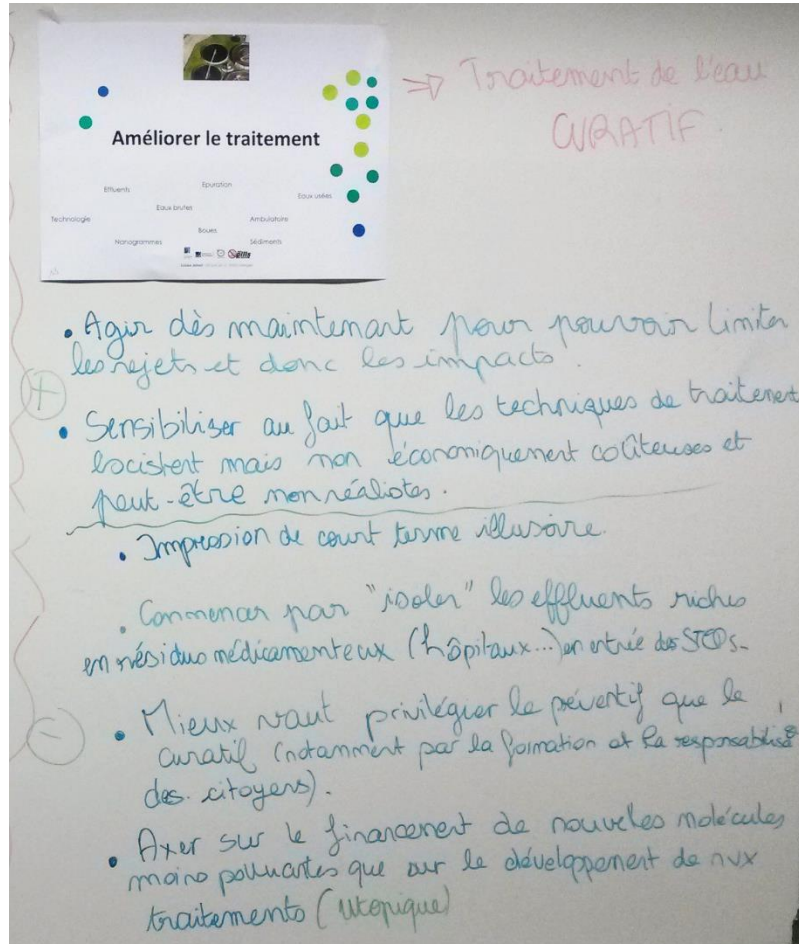 Améliorer le traitement
Effluents
Epuration
Eaux usées
Eaux brutes
Technologie
Ambulatoire
Boues
Nonagrammes
Sédiments
=> Traitement de l'eau
CURATIF.
• Agir dès maintenant pour pouvoir limiter
les rejets et donc les impacts.
+
• Sensibiliser au fait que les techniques de traitement
existent mais non économiquement coûteuses et
peut-être non réalistes.
• Impression de court terme illusoire.
• Commencer par "isoler" les effluents riches
en résidus médicamenteux (hôpitaux...) en entrée des STEPs.
-
• Mieux vaut privilégier le préventif que le
curatif (notamment par la formation et la responsabilisé
des citoyens).
• Axer sur le financement de nouvelles molécules
moins polluantes que sur le développement de nvx
traitements (utopique)